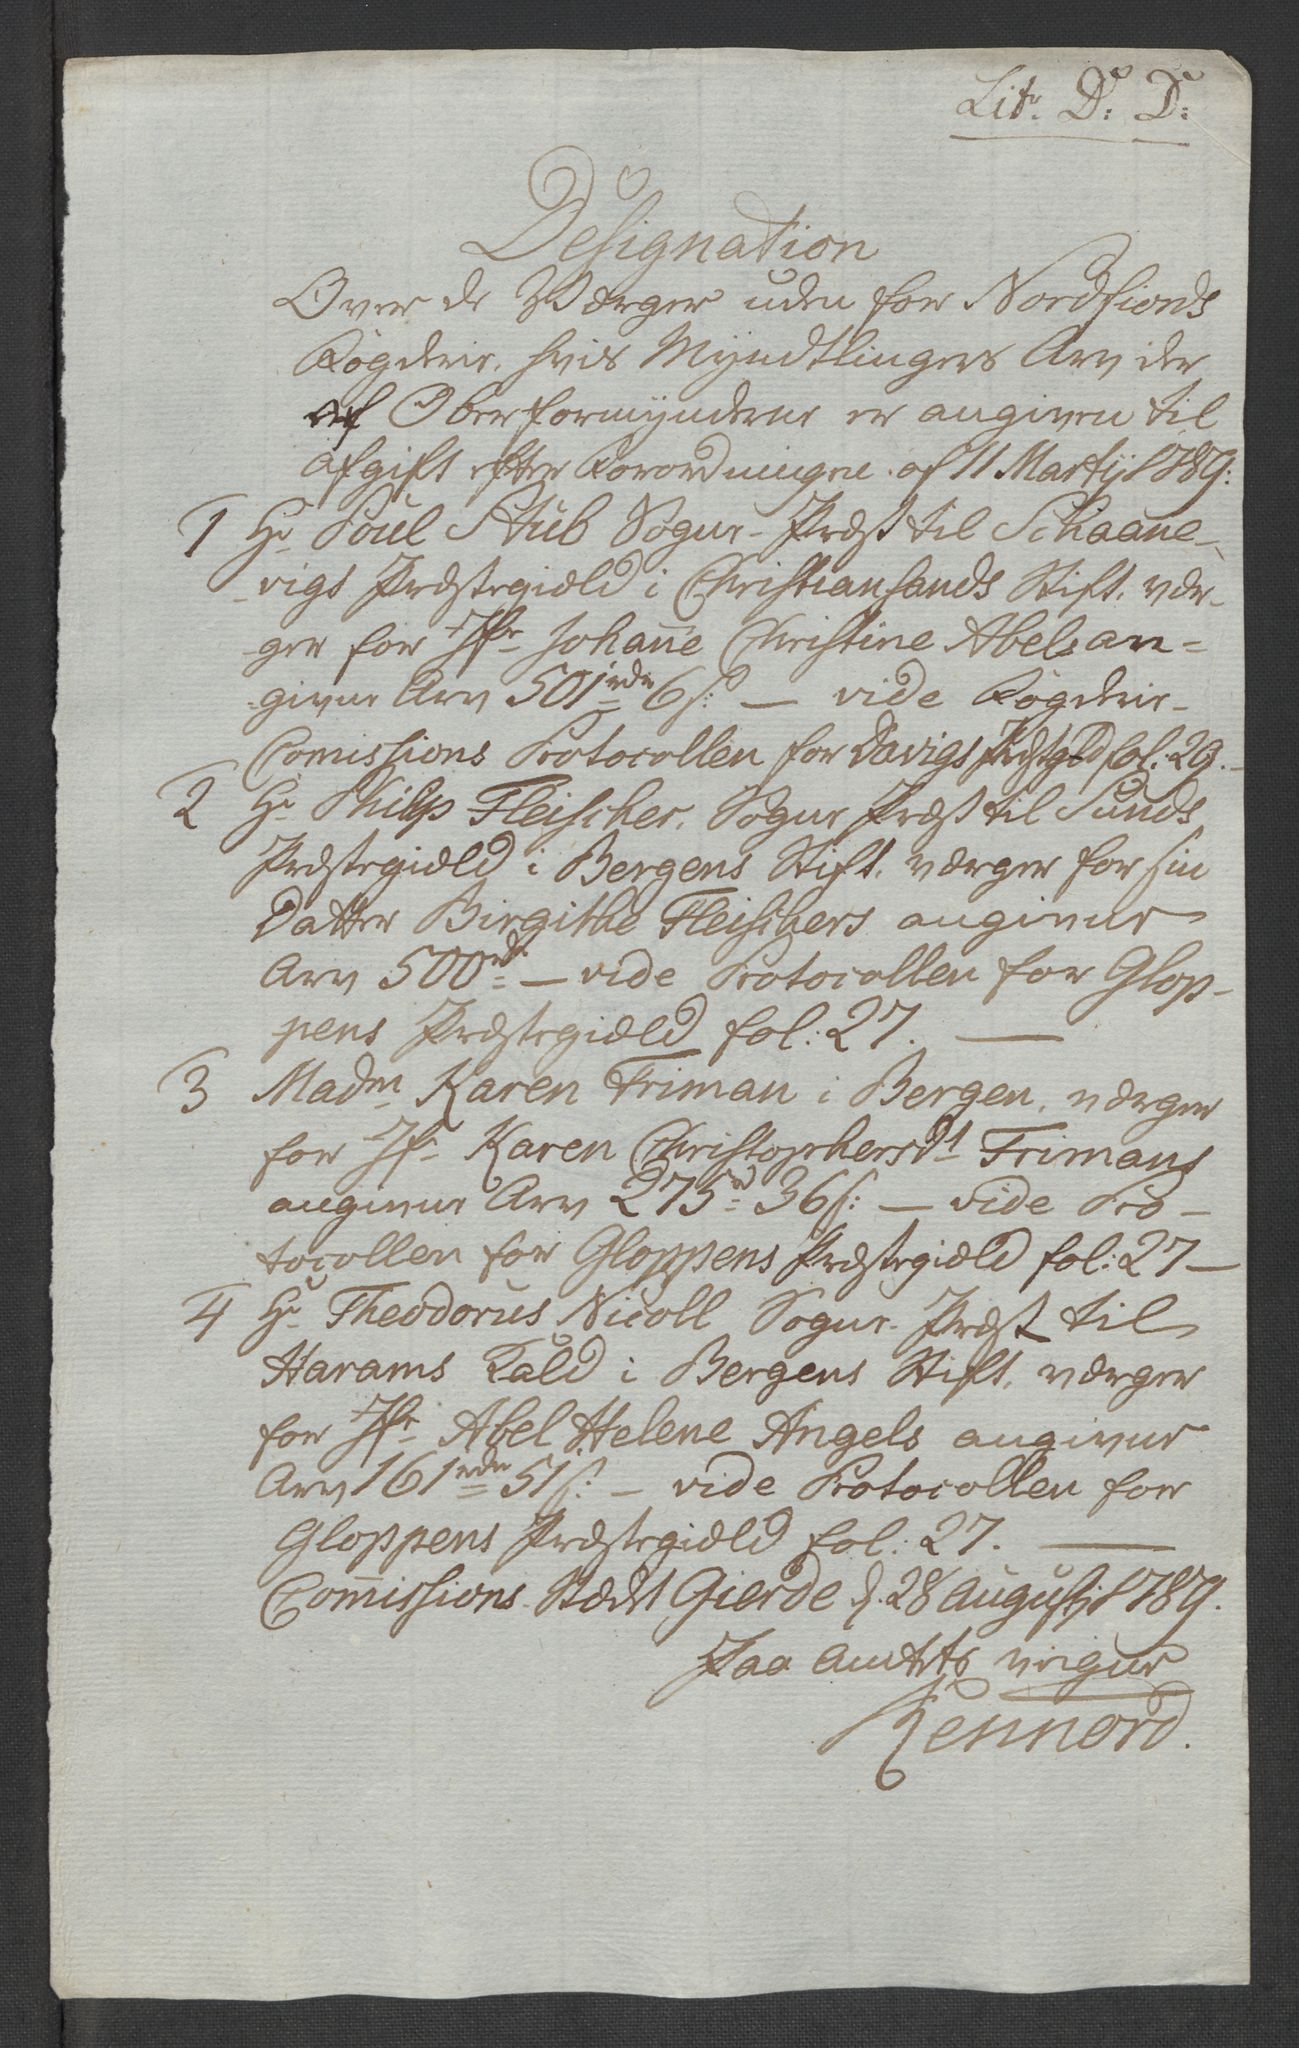 Litr. D: D:
Designation
Over de Værger uden for Nordfiords
Fogderie, hvis Myndtlingers Arv der
af Overformynderne er angiven til
Afgift efter Forordningen af 11 Martij 1789:
1 Hr Poul Stub Sogne-Præst til Schaane-
vigs Præstegield i Christiansands Stift, vær-
ger for Jfr Johañe Christine Abels an=
givne Arv 501 rdr 6 s: — vide Fogderie-
Comissions Protocollen for Davigs Præstgld fol: 29.
2 Hr Philip Fleischer, Sogne Præst til Sunds
Præstegield i Bergens Stift, værger for sin
Datter Birgithe Fleischers angivne
Arv 500 rdr — vide Protocollen for Glop-
pens Præstegield fol: 27. —
3 Madm Karen Friman i Bergen, værger
for Jfr Karen Christophersdt Frimans
angivne Arv 275 rd 36 s: — vide Pro-
tocollen for Gloppens Præstegield fol: 27 —
4 Hr Theodorus Nicoll Sogne-Præst til
Harams Kald i Bergens Stift, værger
for Jfr Abel Helene Angels angivne
Arv 161 rdr 51 s: — vide Protocollen for
Gloppens Præstegield fol: 27. —
Com̃issions-Stædet Gierde d. 28 Augustj 1789.
Paa Amtets veigne
Rennord.